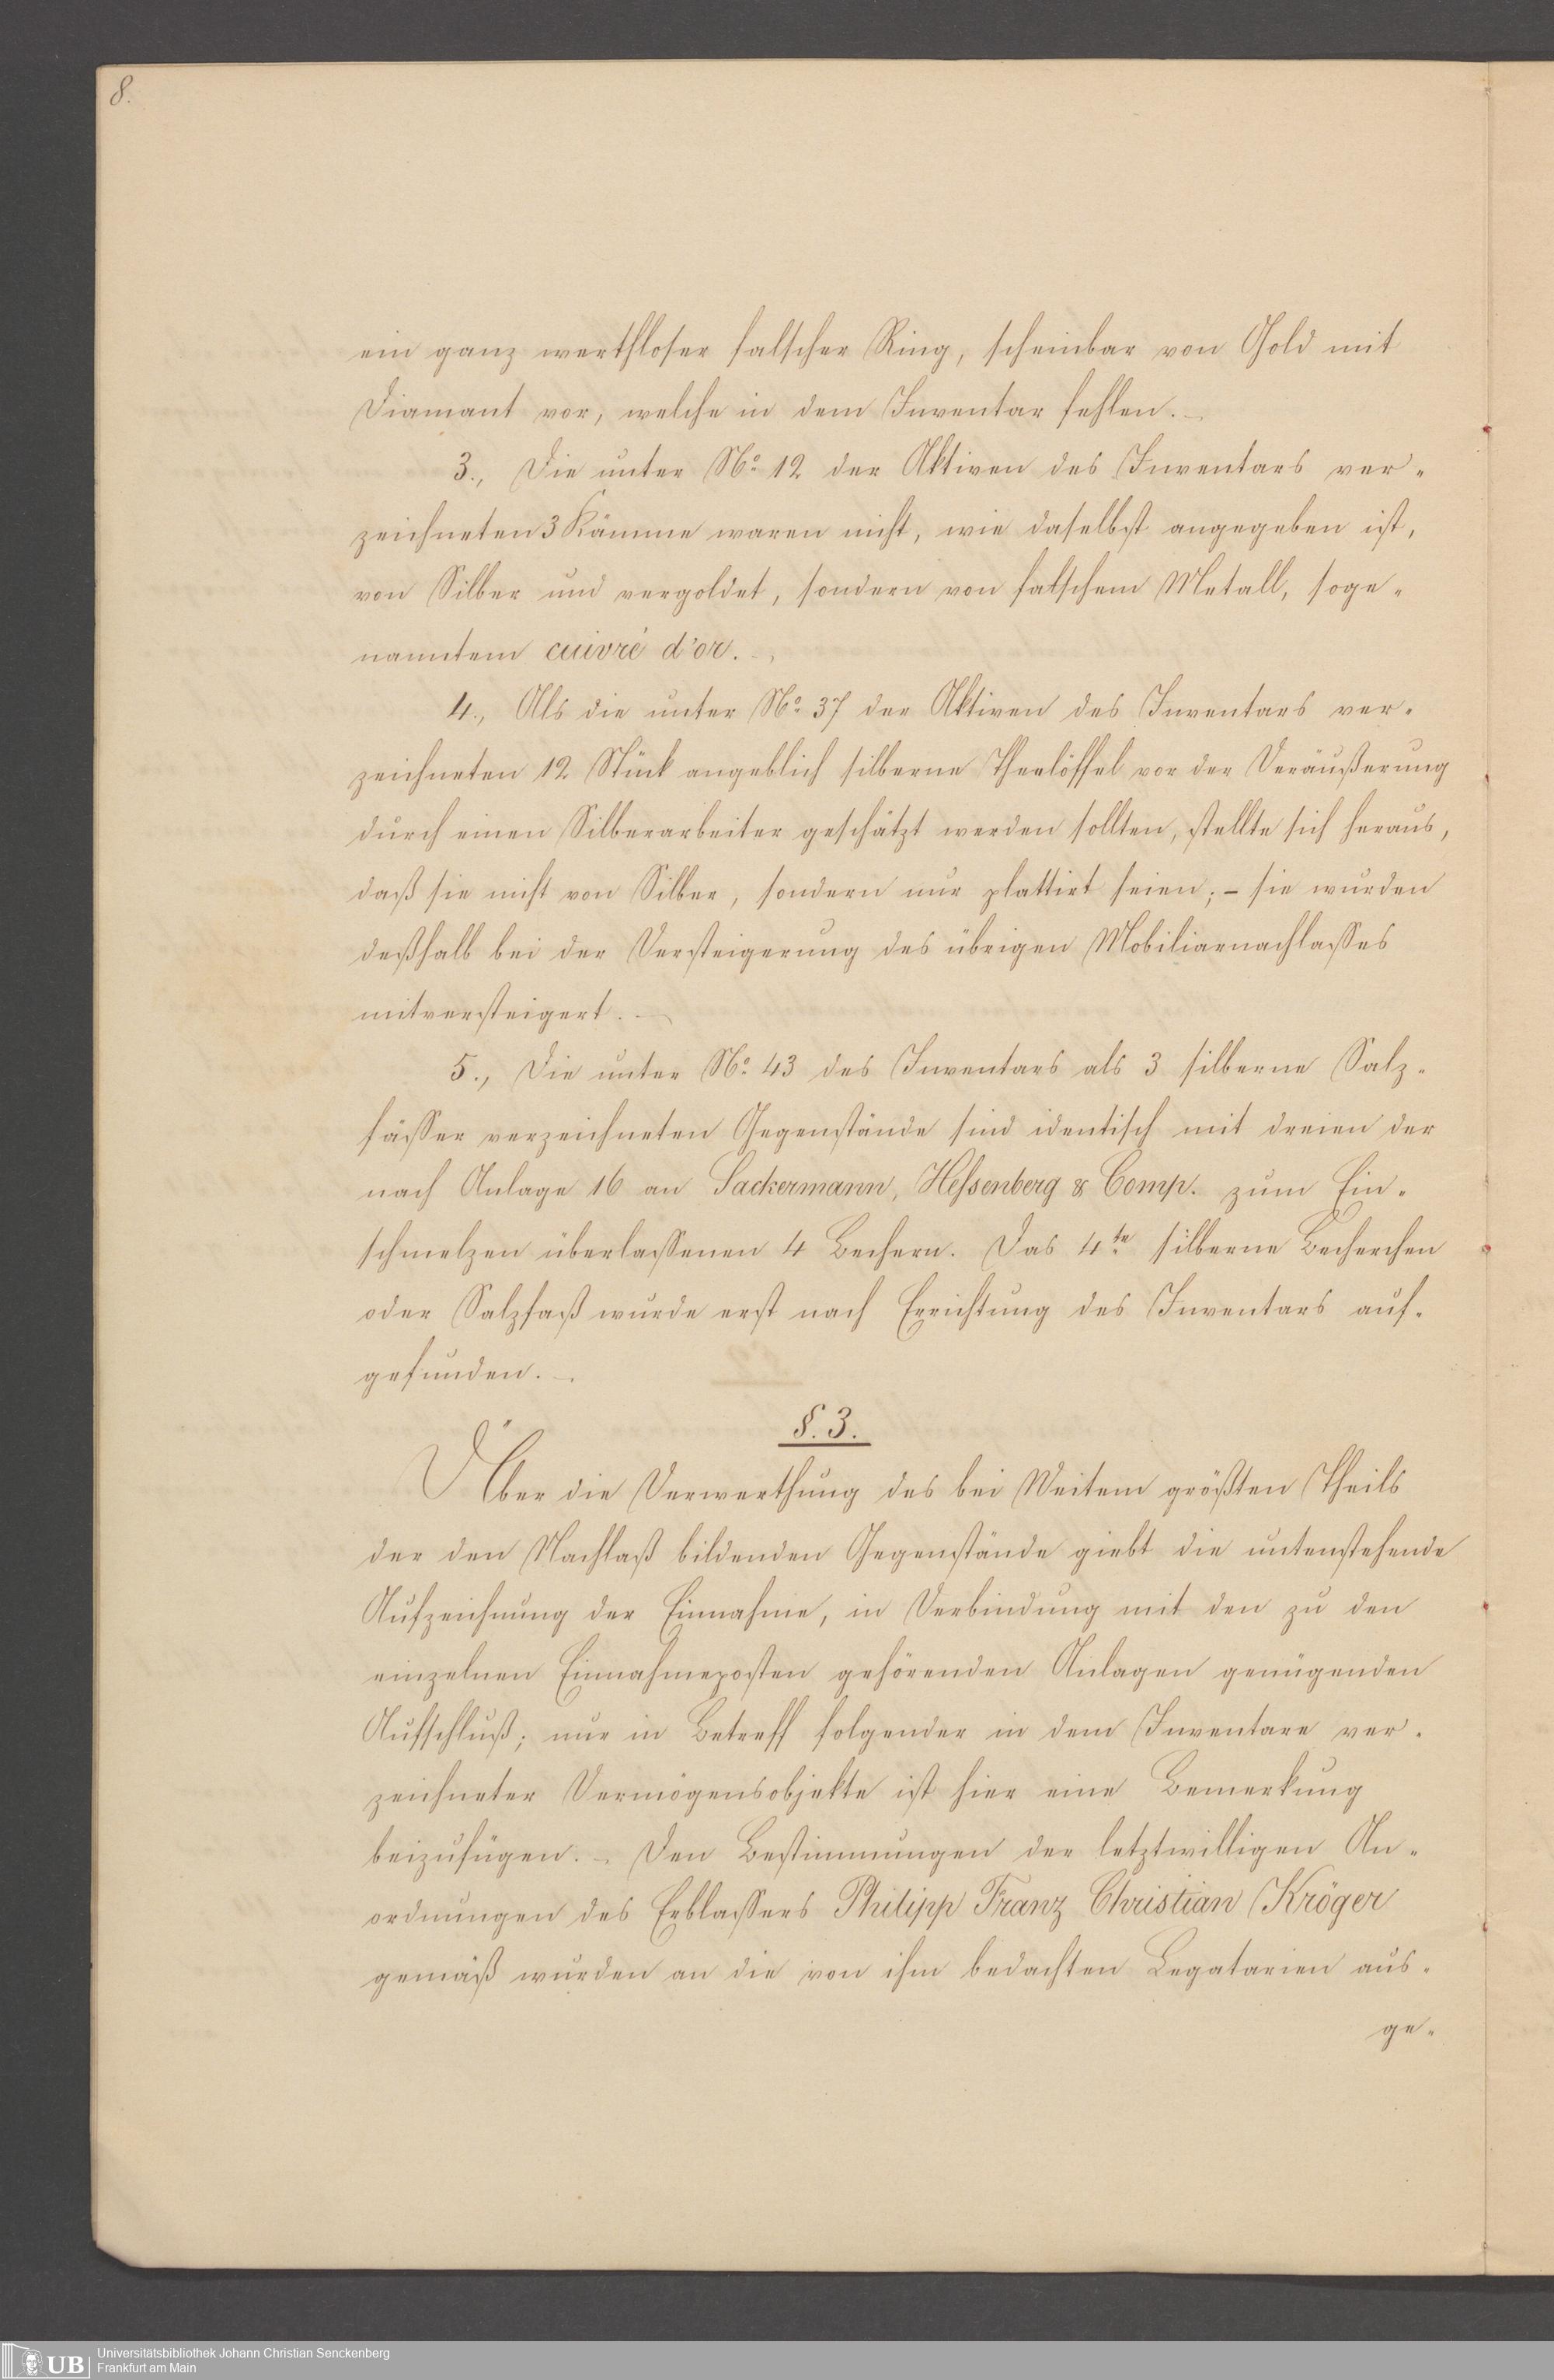 8.
ein ganz werthloser falscher Ring, scheinbar von Gold mit
Diamant vor, welche in dem Inventar fehlen. –
3., Die unter No. 12 der Aktiven des Inventars ver-
zeichneten 3 Kämme waren nicht, wie daselbst angegeben ist,
von Silber und vergoldet, sondern von falschem Metall, soge-
nanntem cuivré d'or. –
4., Als die unter No. 37 der Aktiven des Inventars ver-
zeichneten 12 Stück angeblich silberne Theelöffel vor der Veräußerung
durch einen Silberarbeiter geschätzt werden sollten, stellte sich heraus,
daß sie nicht von Silber, sondern nur plattirt seien; – sie wurden
deßhalb bei der Versteigerung des übrigen Mobiliarnachlasses
mitversteigert. –
5., Die unter No. 43 des Inventars als 3 silberne Salz-
fässer verzeichneten Gegenstände sind identisch mit dreien der
nach Anlage 16 an Sackermann, Hessenberg & Comp. zum Ein-
schmelzen überlassenen 4 Bechern. Das 4te silberne Becherchen
oder Salzfaß wurde erst nach Errichtung des Inventars auf-
gefunden. –
§. 3.
Über die Verwerthung des bei Weitem größten Theils
der den Nachlaß bildenden Gegenstände giebt die untenstehende
Aufzeichnung der Einnahme, in Verbindung mit den zu den
einzelnen Einnahmeposten gehörenden Anlagen genügenden
Aufschluß; nur in Betreff folgender in dem Inventare ver-
zeichneter Vermögensobjekte ist hier eine Bemerkung
beizufügen. – Den Bestimmungen der letztwilligen An-
ordnungen des Erblassers Philipp Franz Christian Kröger
gemäß wurden an die von ihm bedachten Legatarien aus-
ge-
UB
Universitätsbibliothek Johann Christian Senckenberg
Frankfurt am Main